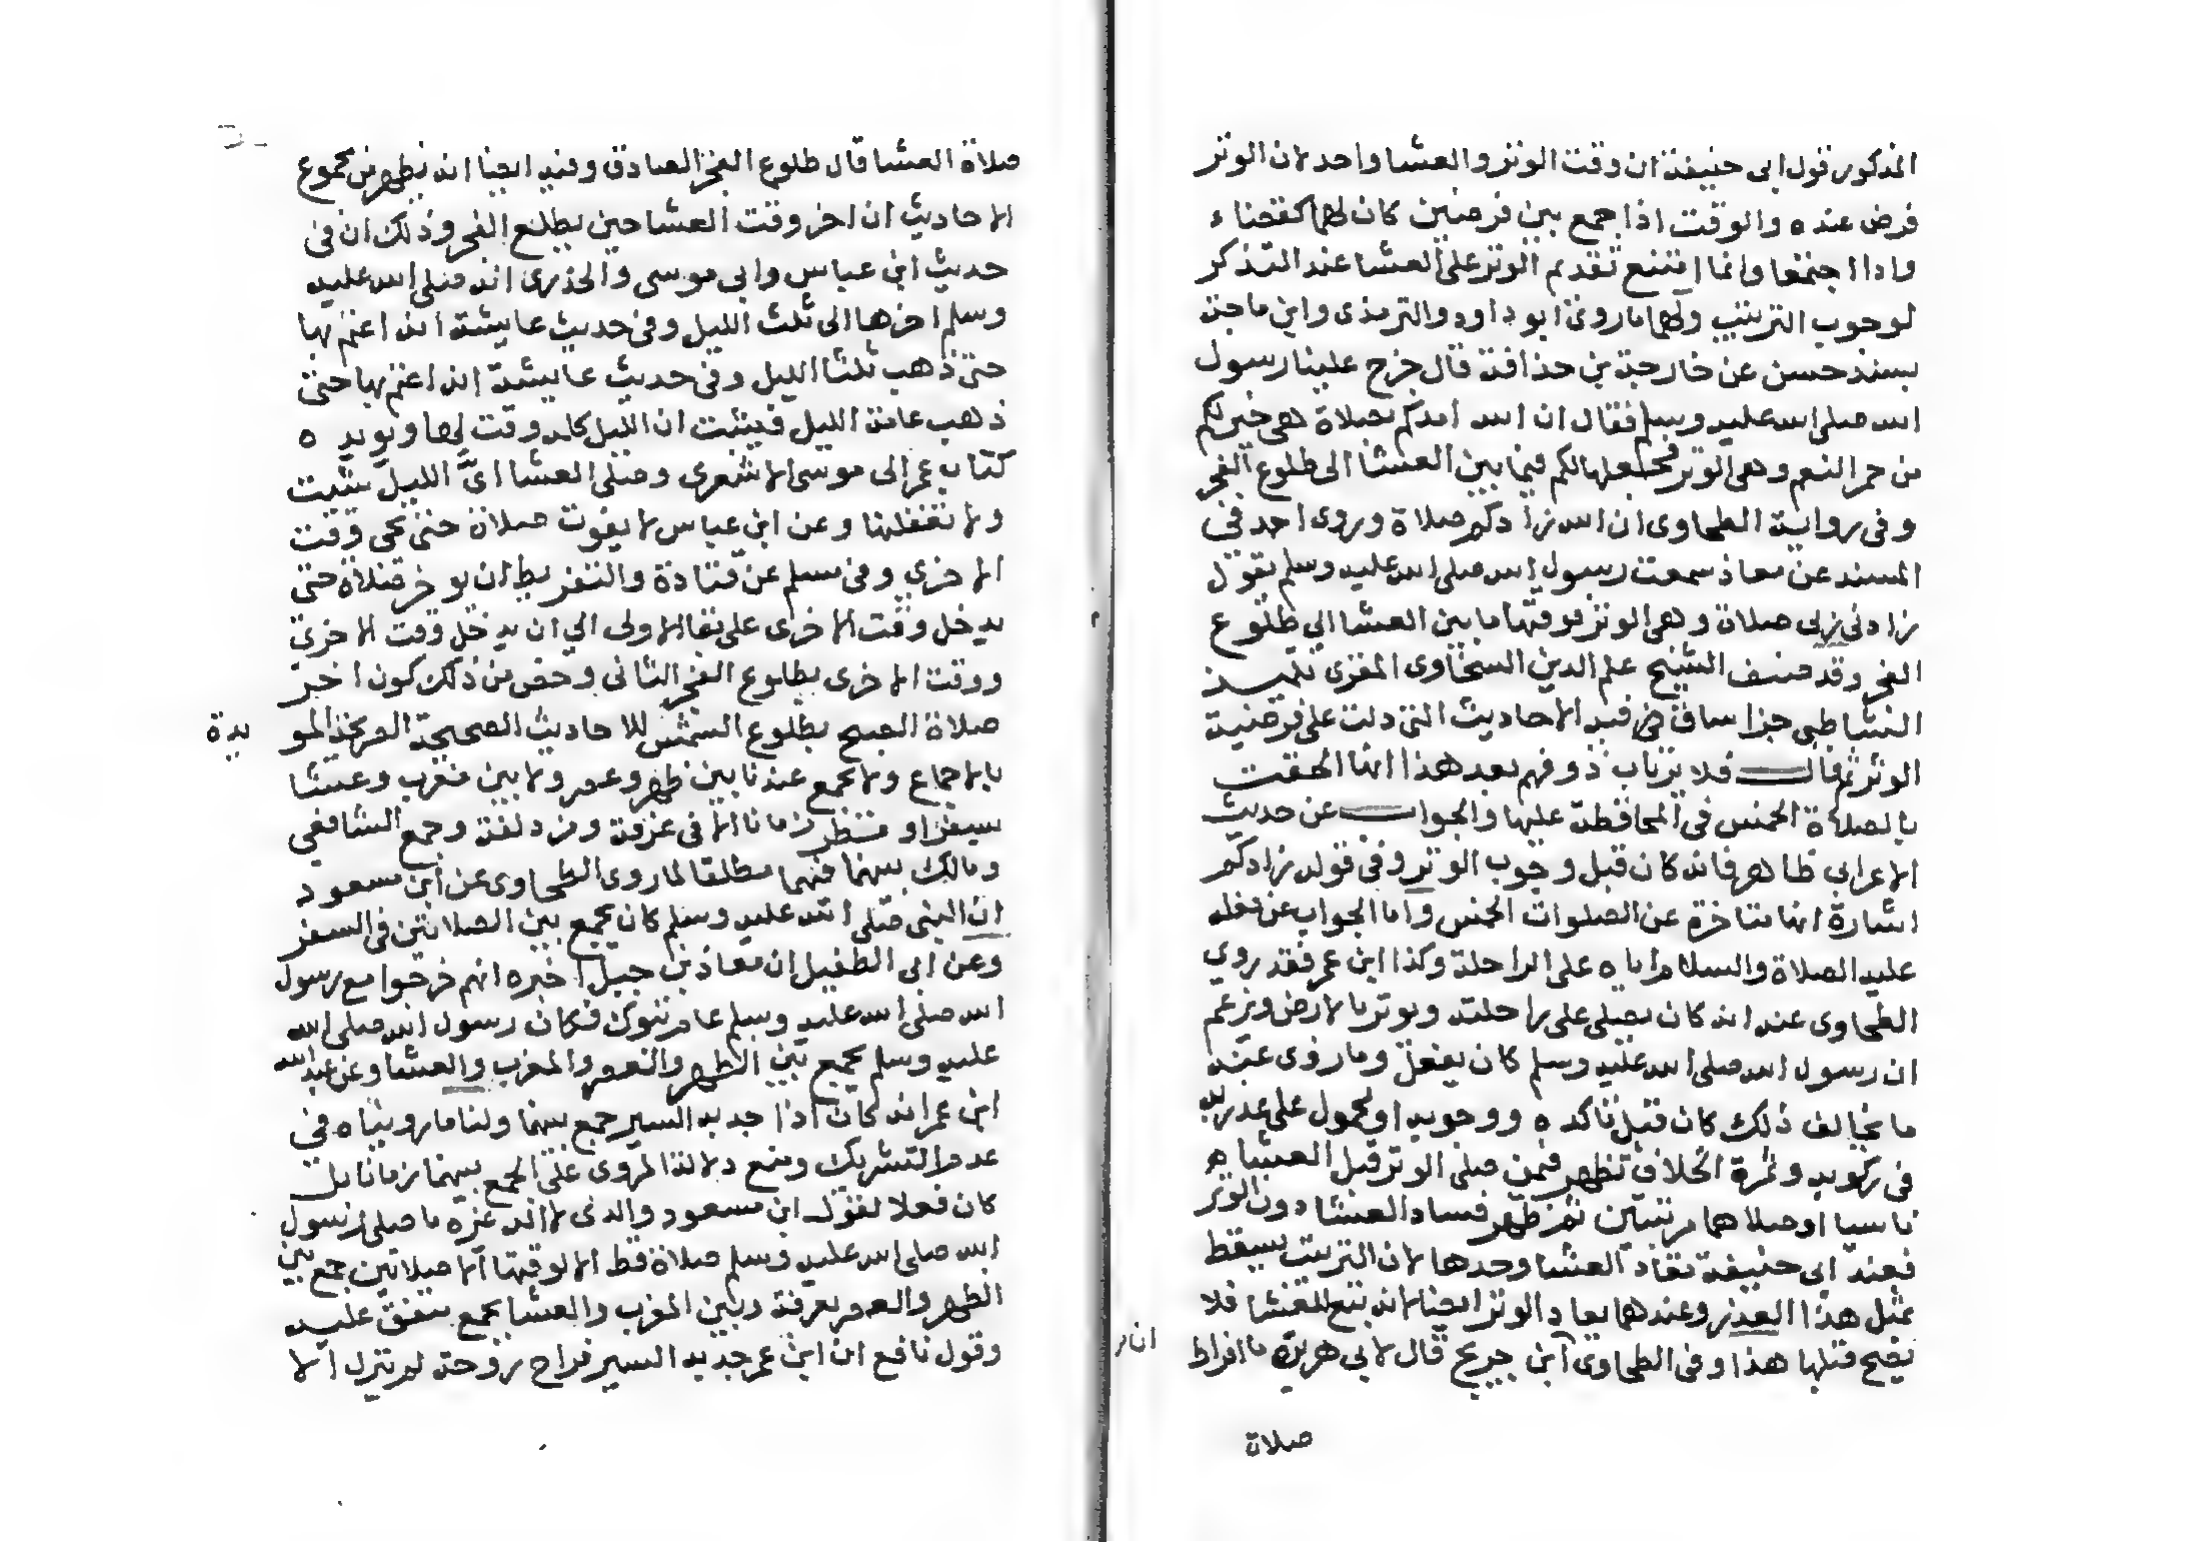 المذكور قول ابى حنيفة ان وقت الوتر والعشا واحد لان الوتر
فرض عنده والوقت اذا جمع بين فرضين كان لهما كقضاء
واداا جتمعا وانما امتنع تقديم الوتر على العشا عند التذكر
لوجوب الترتيب ولهما ماروى ابو داود والترمذى وابن ماجة
بسند حسن عن خارجة بن حذافة قال خرج علينا رسول
الله صلى الله عليه وسلم فقال ان الله امدكم بصلاة هى خير لكم
من حمر النعم وهى الوتر فجعلها لكم فيما بين العشا الى طلوع الفجر
وفى رواية الطحاوى ان الله زادكم صلاة وروى احمد فى
المسند عن معاذ سمعت رسول الله صلى الله عليه وسلم يقول
زادنى ربى صلاة وهى الوتر فوقتها ما بين العشا الى طلوع
الفجر وقد صنف الشيخ علم الدين السخاوى المقرى تلميذ
الشاطبى جزا ساق فيه الاحاديث التى دلت على فرضية
الوتر ثم قال فلا يرتاب ذو فهم بعد هذا انها الحقت
بالصلاة الخمس فى المحافظة عليها والجواب عن حديث
الاعرابى ظاهر فانه كان قبل وجوب الوتر وفى قوله زادكم
اشارة انها متاخرة عن الصلوات الخمس واما الجواب عن فعله
عليه الصلاة والسلام اياه على الراحلة وكذا ابن عمر فقد روى
الطحاوى عنه انه كان يصلى على راحلته ويوتر بالارض وزعم
ان رسول الله صلى الله عليه وسلم كان يفعل وما روى عنه
ما يخالف ذلك كان قبل تاكده ووجوبه او محمول على عذر به
فى ركوبه وثمرة الخلاف تظهر فيمن صلى الوتر قبل العشاء
ناسيا او صلاهما مرتبين ثم ظهر فساد العشا دون الوتر
فعند ابى حنيفة تعاد العشا وحدها لان الترتيب يسقط
بمثل هذا العذر وعندهما يعاد الوتر ايضا لانه تبع للعشا فلا
يصح قبلها هذا وفى الطحاوى ابن جريج قال لابى هريرة ما افراط
صلاة
صلاة العشا قال طلوع الفجر الصادق وفيه ايضا انه يظهر من مجموع
الاحاديث ان اخر وقت العشا حين يطلع الفجر وذلك ان فى
حديث ابن عباس وابى موسى والخذرى انه صلى الله عليه
وسلم اخرها الى ثلث الليل وفى حديث عايشة انه اعتم بها
حتى ذهب ثلثا الليل وفى حديث عايشة انه اعتم بها حتى
ذهب عامة الليل فيثبت ان الليل كله وقت لها ويويده
كتاب عمر الى موسى الاشعرى وصلى العشا اىّ الليل شيت
ولا تغفلها وعن ابن عباس لا يفوت صلاة حتى يجى وقت
الاخرى وفى مسلم عن قتادة والتفريط ان يوخر صلاة حتى
يدخل وقت الاخرى على بقا الاولى الى ان يدخل وقت الاخرى
ووقت الاخرى بطلوع الفجر الثانى وخص من ذلك كون اخر
صلاة الصبح بطلوع الشمس للاحاديث الصحيحة الصريحة المو
يدة
بالاجماع ولا يجمع عندنا بين ظهر وعصر ولا بين مغرب وعشا
بسفر او مطر زمانا الا فى عرفة ومزدلفة وجمع الشافعى
ومالك بينهما فيهما مطلقا لما روى الطحاوى عن ابن مسعود
ان النبى صلى الله عليه وسلم كان يجمع بين الصلاتين فى السفر
وعن ابى الطفيل ان معاذ بن جبل اخبره انهم خرجوا مع رسول
الله صلى الله عليه وسلم عام تبوك فكان رسول الله صلى الله
عليه وسلم يجمع بين الظهر والعصر والمغرب والعشا وعن عبد الله
ابن عمر انه كان اذا جد به السير جمع بينهما ولنا ما رويناه فى
عدم التشريك ومنع دلالة المروى على الجمع بينهما زمانا بل
كان فعلا لقول ابن مسعود والذى لا اله غيره ما صلى رسول
الله صلى الله عليه وسلم صلاة قط الا لوقتها الا صلاتين جمع بين
الظهر والعصر بعرفة وبين المغرب والعشا بجمع متفق عليه
وقول نافع ان ابن عمر جد به السير فراح روحة لم ينزل الا